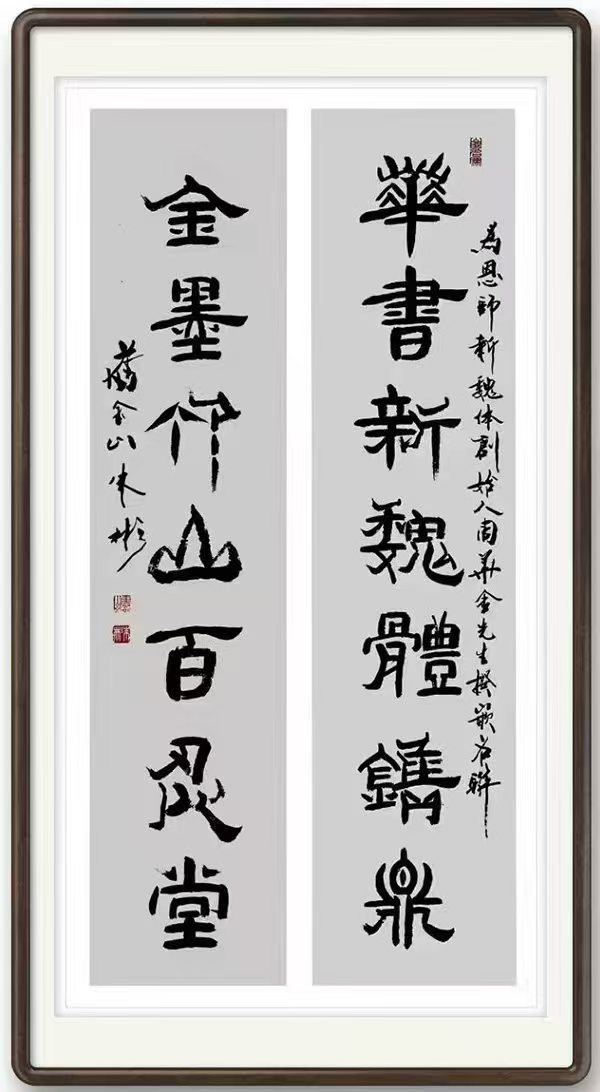 為恩師新魏体創始人周華金先生撰嵌名聯
華書新魏體鐫鼎
金墨山百忍堂
舊金山朱彬